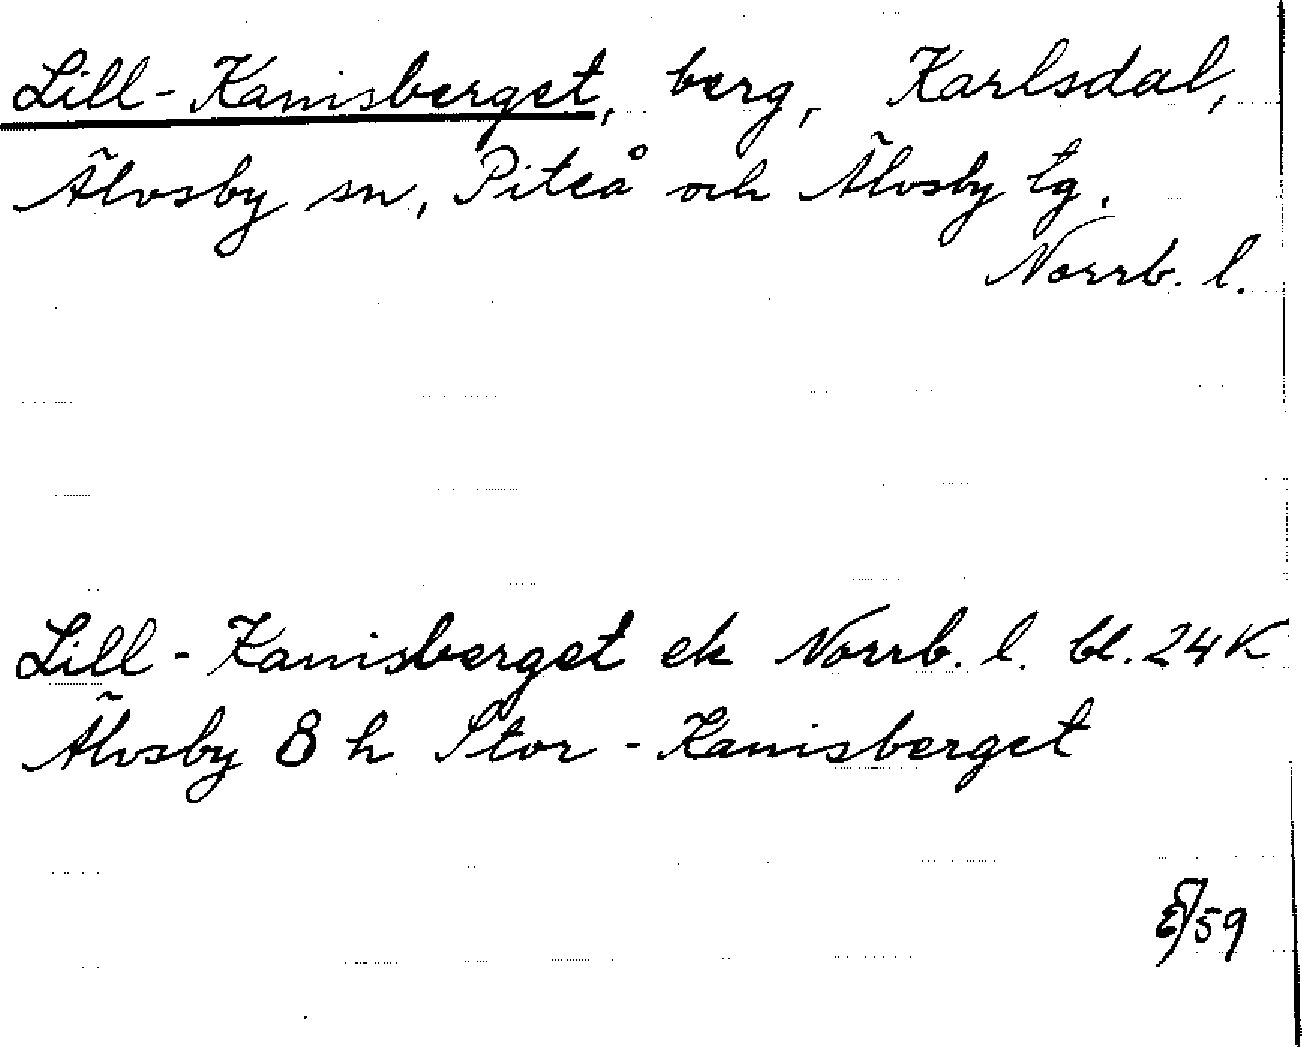 Lill-Kanisberget, berg, Karlsdal,
Älvsby sn, Piteå och Älvsby tg,
Norrb. l.
Lill-Kanisberget ek Norrb. l. bl. 24K
Älvsby 8 h Stor-Kanisberget
59